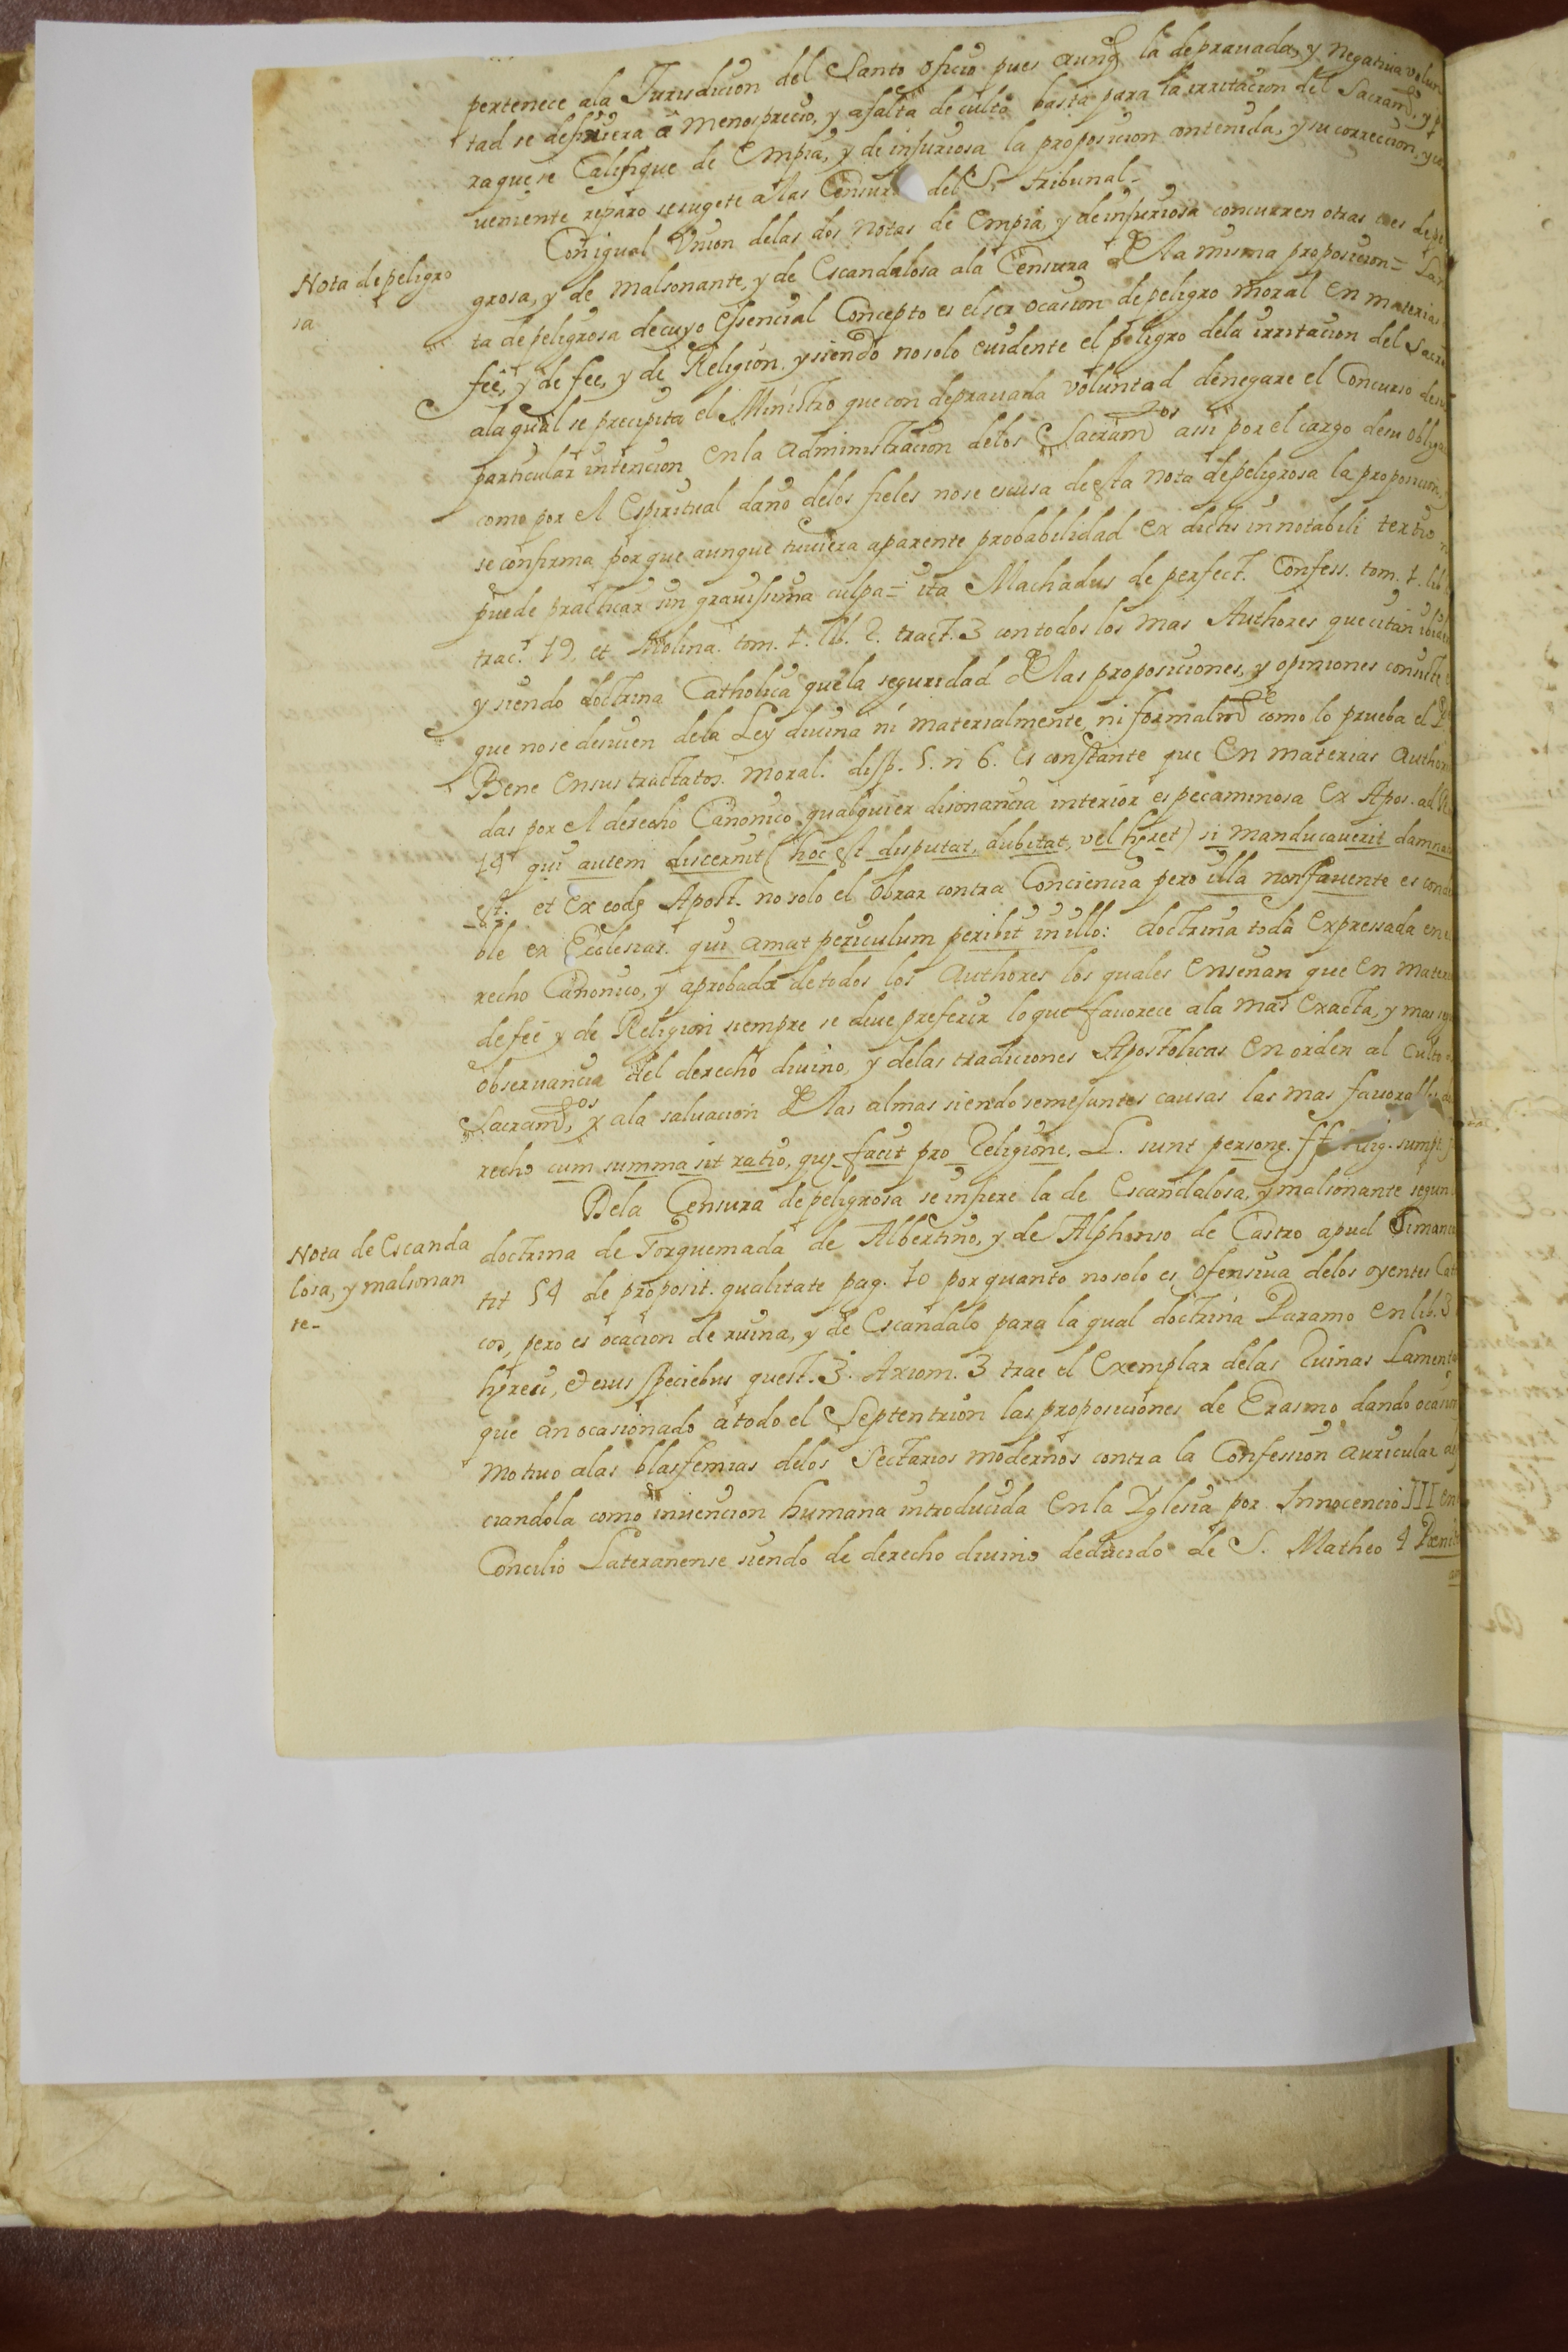 pertenece ala Jurisdicion del Santo oficio pues aunq la deprauada, y negatiua volun
tad se defiriera â menosprecio, y afalta de culto basta para la irritacion del Sacramto, y p
raque se Califique de Empia, y de injuriosa la proposicion contenida, y su correccion, y con
ueniente reparo se sugete alas Censur del S. tribunal_
Con igual Vnion delas dos notas de Empia, y de injuriosa concurren otras tres de peli
Nota de peligro
sa
grosa, y de malsonante, y de Escandalosa ala Censura dela misma proposicion =
ta de peligrosa de cuyo essencial Concepto es el ser ocasion de peligro moral en materias
fee, y de fee, y de Religion. y siendo no solo euidente el peligro dela irritacion del Sacra
ala qual se precipita el Ministro que con deprauada voluntad denegare el Concurso de su
particular intencion en la administracion delos Sacramtos assi por el cargo de su obliga
como por el Espiritual daño delos fieles no se escusa de esta nota de peligrosa la proposicion,
se confirma porque aunque tuuiera aparente probabilidad ex dictis in notabili tertio n
puede practicar sin grauissima culpa = ita Machadus de perfect. Confess. tom. 1. lib.
trac.t 19, et Molina. tom. 1. lib. 2. tract. 3 con todos los mas Authores que citan
y siendo doctrina Catholica que la seguridad delas proposiciones, y opiniones consiste
que no se desuien dela Ley diuina ni materialmente, ni formalmte como lo prueba el
Bene en sus tractatos. moral. disp. 5. n 6. Es constante que en materias author
das por el derecho Canonico qualquier disonancia interior es pecaminosa ex Apos. ad
14 qui autem discernit (hoc est disputat, dubitat, vel hęret) si manducauerit damna
est. et ex eodę Apost. no solo el obrar contra Conciencia pero illa non fauente es
ble ex Ecclesias. qui amat periculum peribit in illo: doctrina toda expressada en
recho Canonico, y aprobada de todos los Authores los quales enseñan que en mater
de feè y de Religion siempre se deue preferir lo que fauorece ala mas exacta, y mas
obseruancia del derecho diuino, y delas tradiciones Apostolicas en orden al culto
Sacramtos, y ala saluacion delas almas siendo semejantes causas las mas fauora
recho cum summa sit ratio, quę facit pro Religione. L. sunt personę. ff
Dela Censura de peligrosa se infiere la de Escandalosa, y malsonante segun
Nota de Escanda
losa, y malsonan
te_
doctrina de Torquemada de Albertino, y de Alphonso de Castro apud Simanca
tit 54 de proposit. qualitate pag. 10 por quanto no solo es ofensiua delos oyentes Cat
cos, pero es ocacion de ruina, y de Escandalo para la qual doctrina Paramo en lib. 3
hęresi, et eius speciebus quest. 3. Axiom. 3 trae el exemplar delas Ruinas Lamenta
que an ocasionado a todo el Septentrion las proposiciones de Erasmo dando ocasion
motiuo alas blasfemias delos Sectarios modernos contra la Confession auricular
ciandola como inuencion humana introducida en la Yglesia por Innocencio III en
Concilio Lateranense siendo de derecho diuino deducido de S. Matheo 4